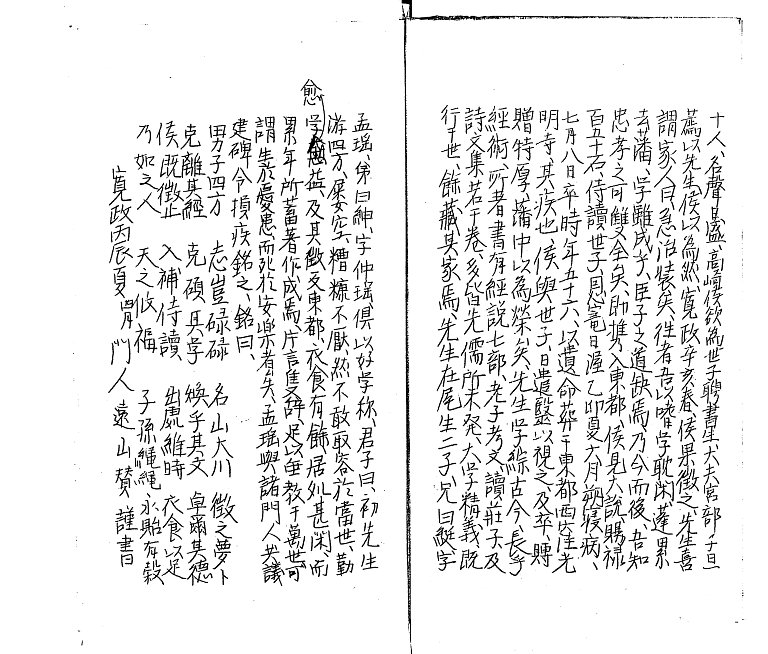 十人、名聲日盛、高崎侯欲為世子聘書生、大夫宮部子旦
薦以先生、侯以為然、寛政辛亥春、侯果徴之、先生喜
謂家人曰、急治裝矣、往者吾以嗜学耽閑、蓬累
去藩、学雖成乎、臣子之道缺焉、乃今而後、吾知
忠孝之可雙全矣、助携入東都、侯見大説、賜禄
百五十石、侍讀世子、恩竉日渥、乙卯夏六月病、
七月八日卒、時年五十六、以遺命葬于東都西窪光
明寺、其疾也、侯與世子、日遣醫以視之、及卒、賻
贈特厚、藩中以為榮矣、先生学綜古今、長乎
經術、所著書有經説七部、老子考文、讀莊子、及
詩文集若干卷、多皆先儒所未発、大学精義既
行于世、餘藏其家焉、先生在尾生二子、兄曰綎、字
孟瑶、弟曰紳、字仲瑶、倶以好学称、君子曰、初先生
游四方、屡安空、糟糠不厭、然不敢取容於當世、勤
学愈益、及其徴反東都、衣食有餘、居処甚閑、而
愈
累年所蓄著作、成焉、片言隻辞、足以垂教于萬世、可
謂生於憂患、而死於安樂者矣、孟瑶與諸門人共議
建碑、令損疾銘之、銘曰、
男子四方 志豈碌碌 名山大川 徴之夢卜
克離其經 克碩其学 煥乎其文 卓爾其德
侯既徴止 入補侍讀 出處維時 衣食以足
乃如之人 天之攸福 子孫繩繩 永貽有穀
寛政丙辰夏 門人 遠山賛謹書